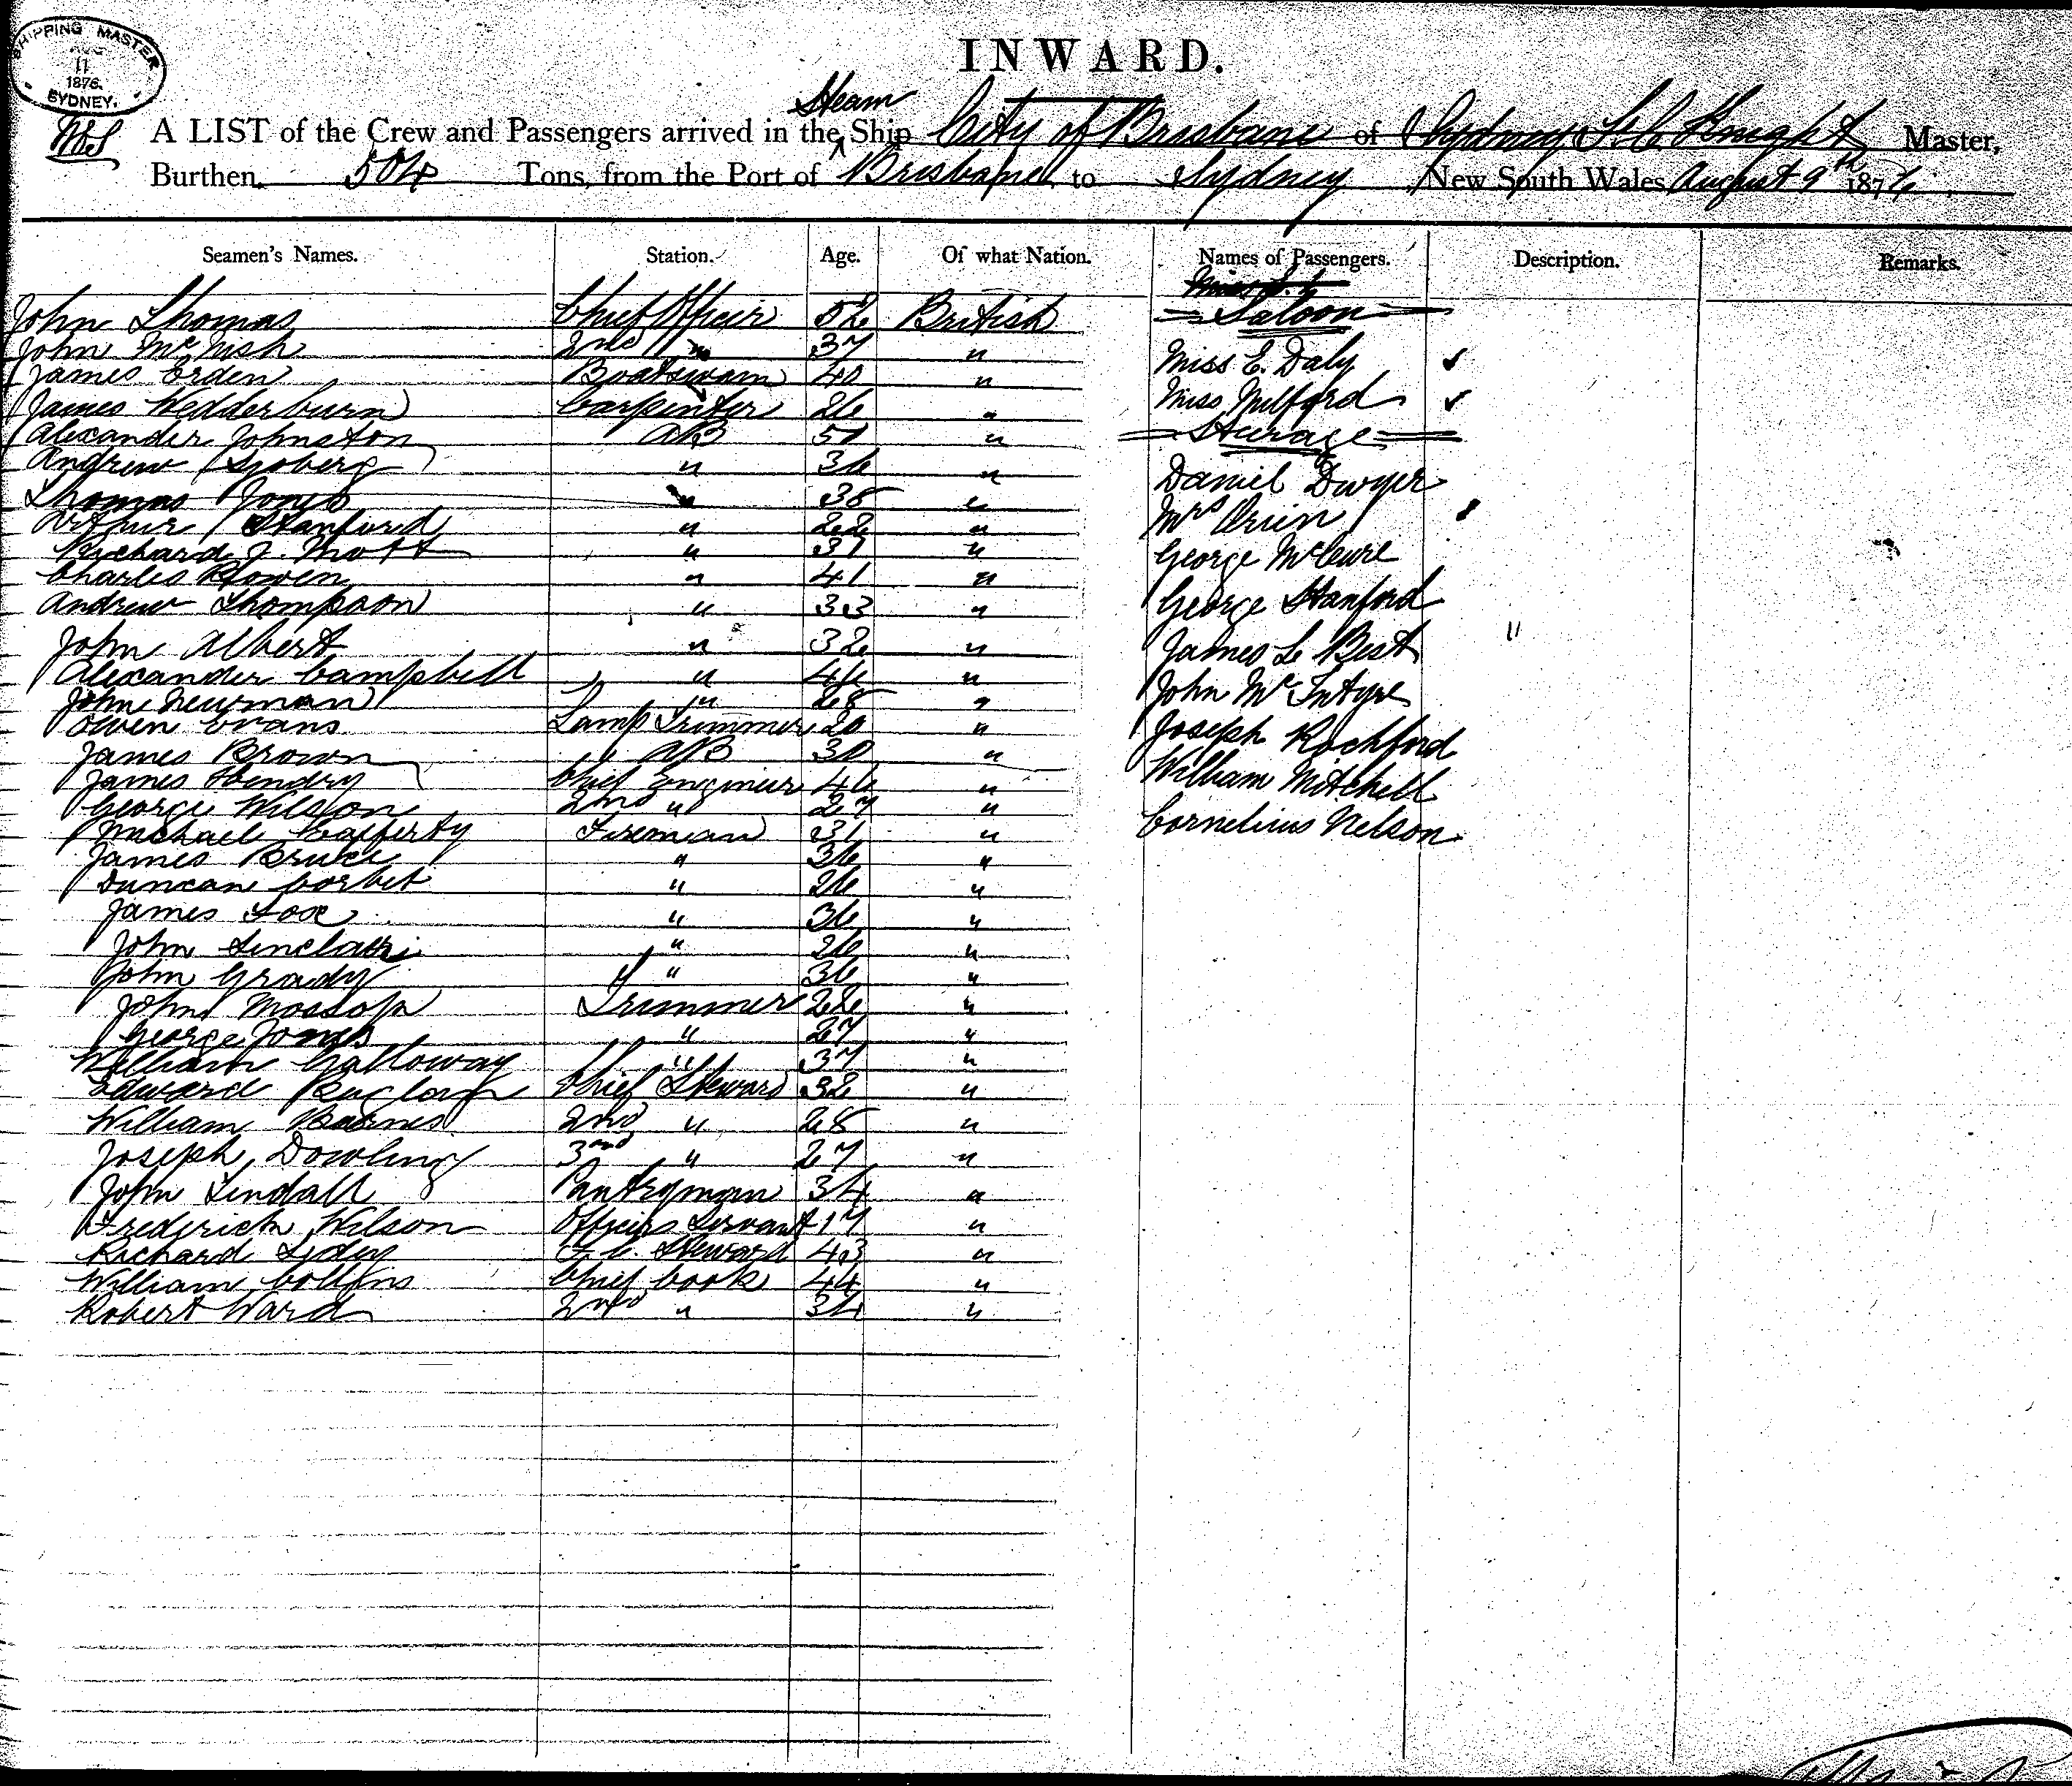 SHIPPING MASTER
AUG
11
1876.
SYDNEY.
INWARD.
Steam
A LIST of the Crew and Passengers arrived in the Ship City of Brisbane of Sydney Knight Master,
Burthen 504 Tons, from the Port of Brisbane to Sydney New South Wales August 9th 1876
Seamen's Names. Station. Age. Of what Nation. Names of Passengers. Description. Remarks.
John Thomas Chief Officer 52 British
John McNish 2nd " 37 "
James Orden Boatswain 40 "
James Wedderburn Carpenter 26 "
Alexander Johnston AB 51 "
Andrew Sjoberg " 36 "
Thomas Jones " 38 "
Arthur Stanford " 22 "
Richard J. Mott " 31 "
Charles Bowen " 41 "
Andrew Thompson " 33 "
John Albert " 32 "
Alexander Campbell " 46 "
John Newman " 28 "
Owen Evans Lamp Trimmer 20 "
James Brown AB 30 "
James Hendry Chief Engineer 46 "
George Wilson 2nd " 27 "
Michael Cafferty Fireman 31 "
James Bruce " 36 "
Duncan Corbet " 26 "
James Fox " 36 "
John Sinclair " 26 "
John Grady " 36 "
John Mossop Trimmer 22 "
George Jones " 27 "
William Galloway " 37 "
Edward Chief Steward 32 "
William Barnes 2nd " 28 "
Joseph Dowling 3rd " 27 "
John Lindall Pantryman 34 "
Frederick Wilson Officers Servant 17 "
Richard F. C. Steward 43 "
William Collins Chief Cook 44 "
Robert Ward 2nd " 34 "
Saloon
Miss E. Daly
Miss Milford
Steerage
Daniel Dwyer
Mrs
George McClure
George Stanford
James Le Best
John McIntyre
Joseph Rochford
William Mitchell
Cornelius Nelson